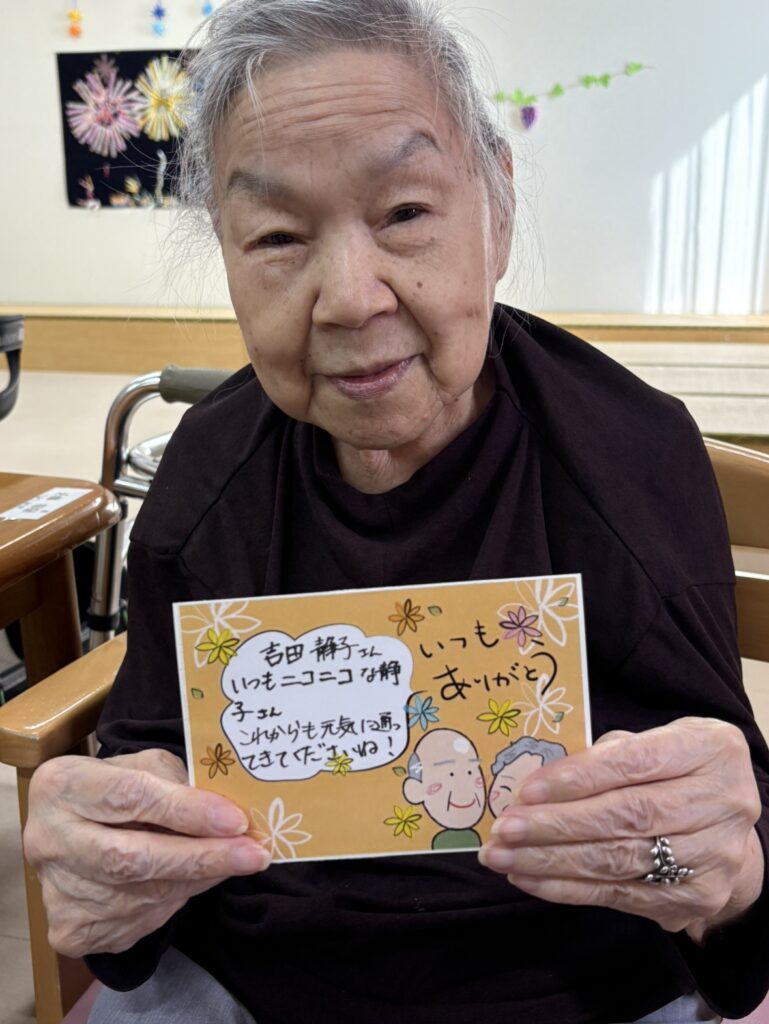 吉田 静子さん
いつもニコニコな静
子さん
これからも元気に通っ
てきてくださいね！
いつも
ありがとう